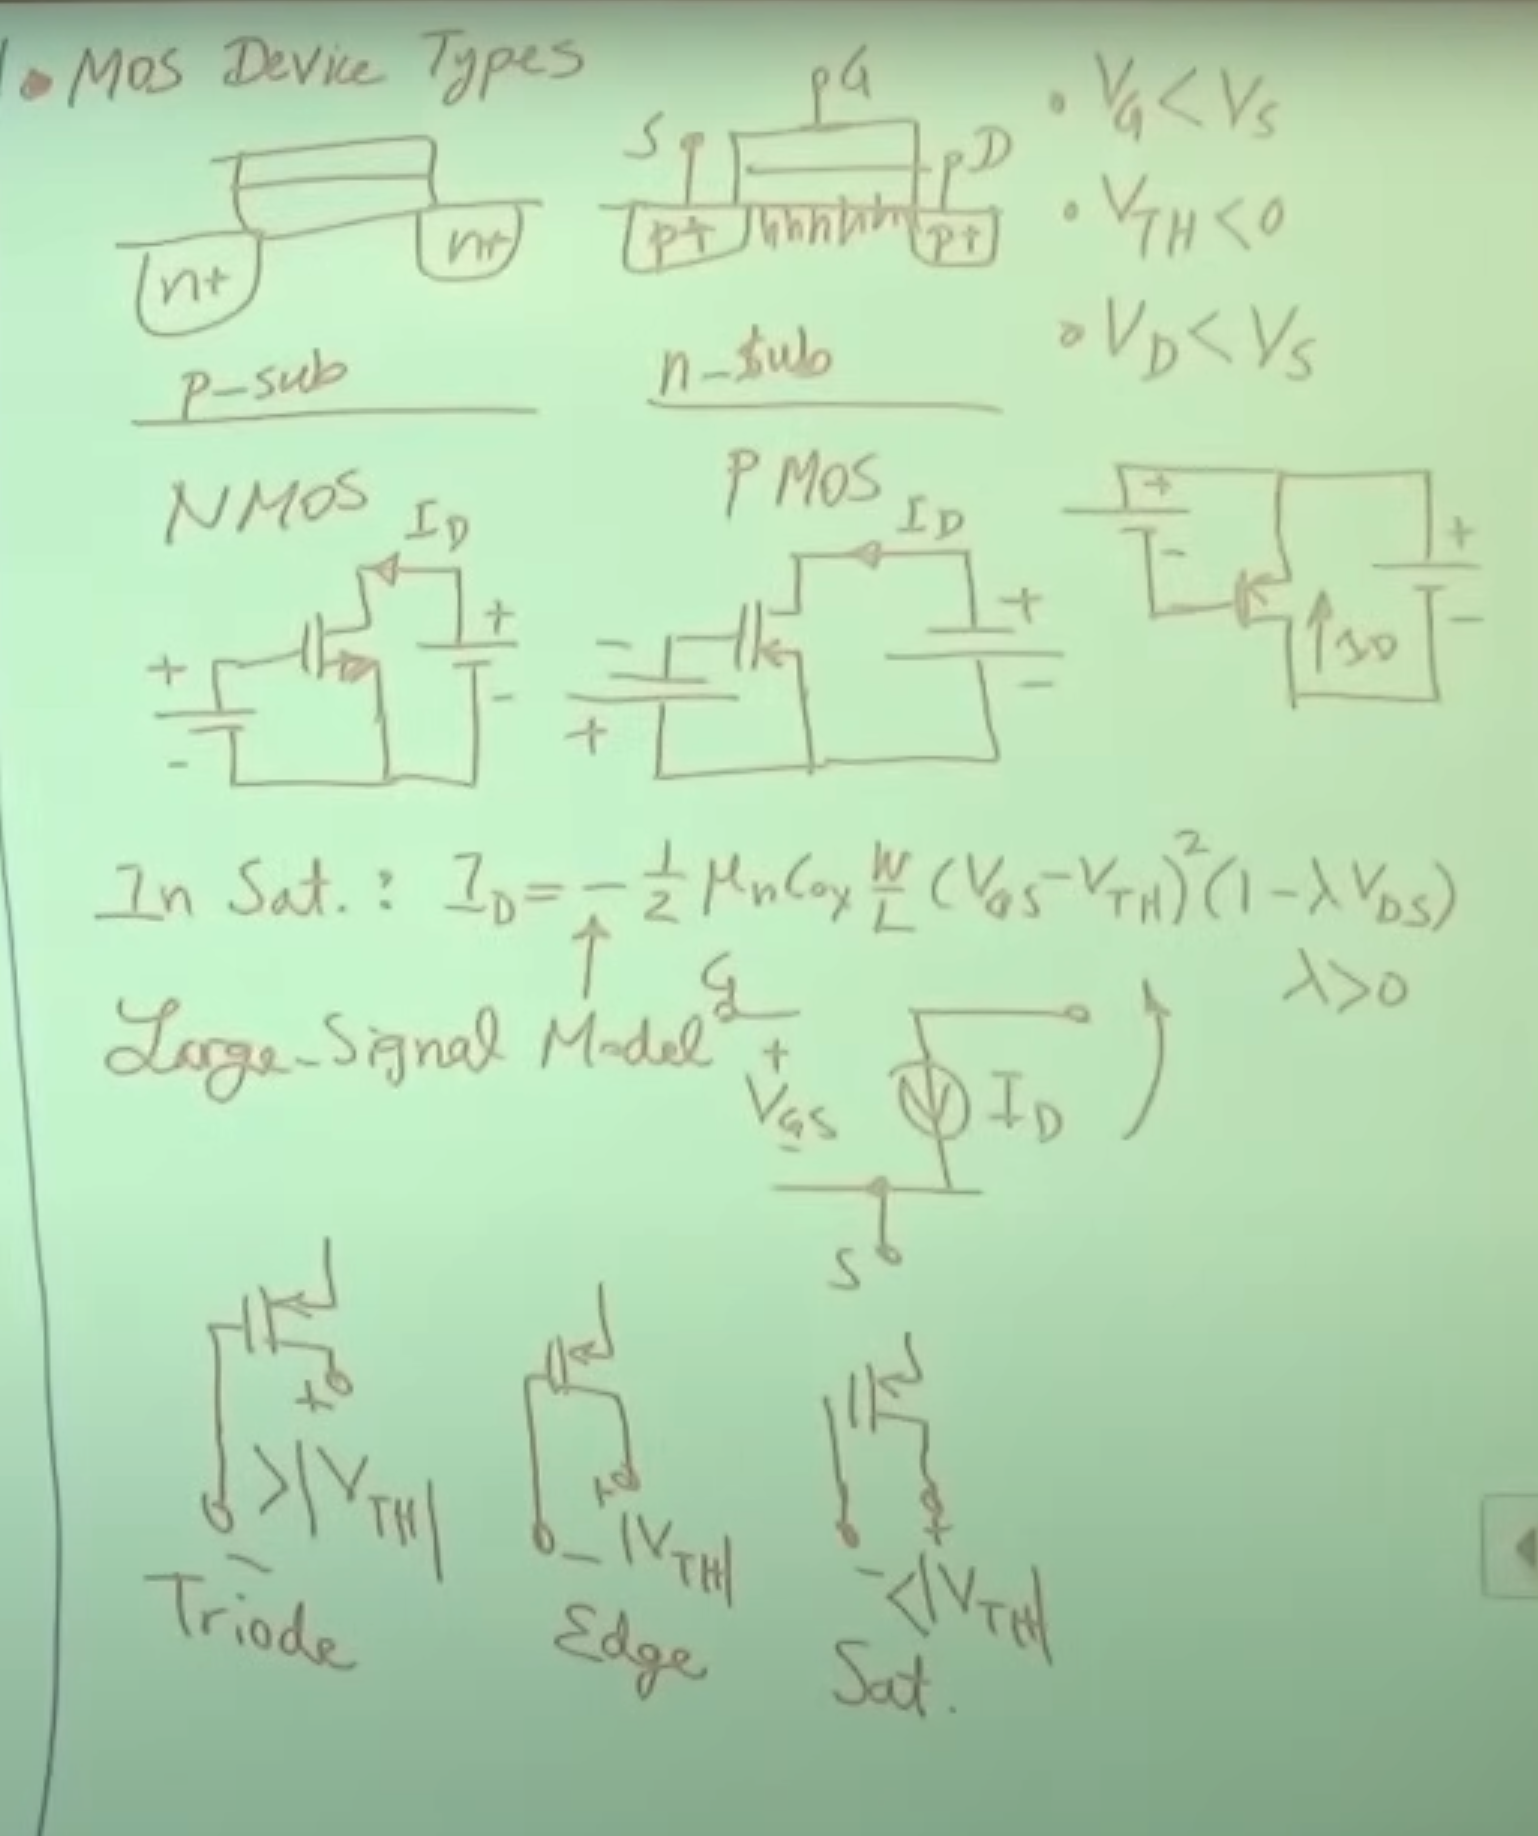 • MOS Device Types
G
S
D
n+ n+
p+ hhhhhh p+
p-sub
n-sub
• VG < VS
• VTH < 0
• VD < VS
NMOS
PMOS
ID
+
-
+
-
ID
-
+
+
-
+
-
+
-
ID
In Sat. : ID = - 1/2 μn Cox W/L (VGS - VTH)² (1 - λ VDS)
↑
λ > 0
Large-Signal Model
G
+
VGS
-
ID
S
+
> |VTH|
-
Triode
+
- |VTH|
Edge
+
- < |VTH|
Sat.